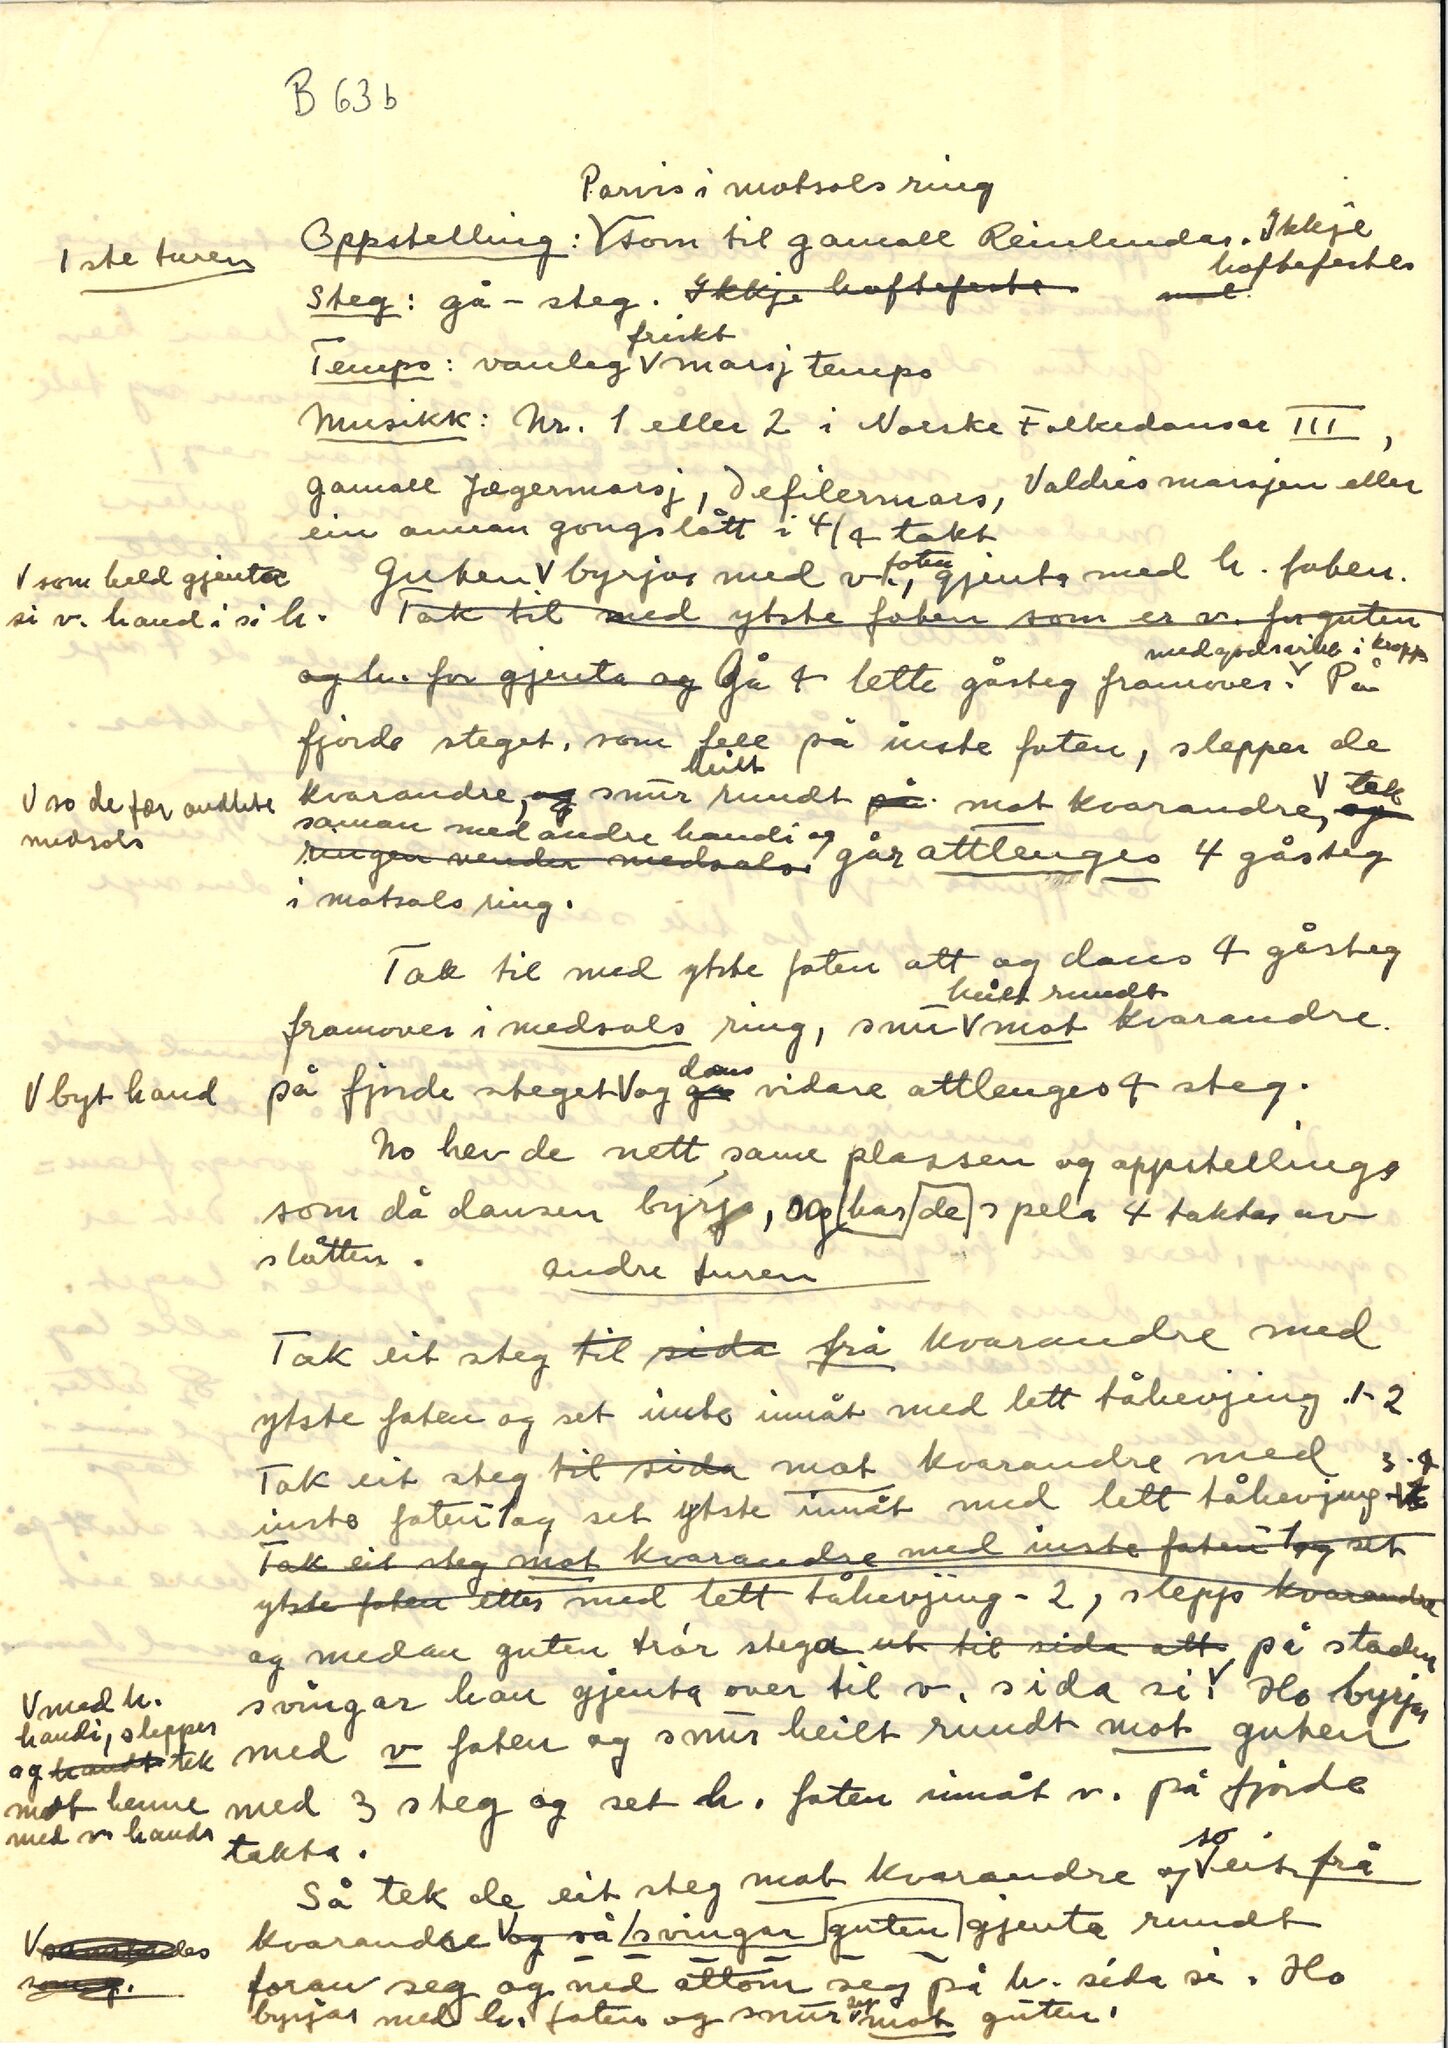 B 63 b
Parvis i motsols ring
1ste turen
Oppstelling: V som til gamall Reinlendar. Ikkje
hoftefeste
Steg: gå - steg. Ikkje hoftefeste.
friskt
Tempo: vanleg V marsj tempo
Musikk: Nr. 1 eller 2 i Norske Folkedansar III,
gamall Jegermarsj, Defilermars, Valdresmarsjen eller
ein annan gongslått i 4/4 takt
foten
V som held gjenta
si v. hand i si h.
Guten V byrjar med v., gjenta med h. foten.
Tak til med ytste foten som er v. for guten
med god svikt i kropp
og h. for gjenta og Gå 4 lette gåsteg framover. V På
fjorde steget, som fell på inste foten, slepper de
heilt
V so de fær andlete
medsols
kvarandre, og snur rundt på mot kvarandre, V tek
og
saman med andre handi og
ringen vender medsols. går attlenges 4 gåsteg
i motsols ring.
Tak til med ytste foten att og dans 4 gåsteg
heilt rundt
framover i medsols ring, snu V mot kvarandre
V byt hand
dans
på fjorde steget V og ga vidare attlenges 4 steg.
No hev de nett same plassen og oppstellinga
som då dansen byrja, og har de spela 4 taktar av
slåtten.
andre turen
Tak eit steg til sida frå kvarandre med
ytste foten og set inste innåt med lett tåhevjing. 1-2
Tak eit steg til sida mot kvarandre med 3-4
inste foten 1 og set ytste innåt med lett tåhevjing
Tak eit steg mot kvarandre med inste foten 1 og set
ytste foten etter med lett tåhevjing - 2, slepp kvarandre
og medan guten trør stega ut til sida att på staden
svingar han gjenta over til v. sida si. V Ho byrjar
V med h.
handi, slepper
og handa tek
mot henne
med v. handa
med v foten og snur heilt rundt mot guten
med 3 steg og set h. foten innåt v. på fjorde
takta.
so
Så tek de eit steg mot kvarandre og V eit frå
kvarandre V og så svingar guten gjenta rundt
foran seg og ned attom seg på h. sida si. Ho
byrjar med h. foten og snur V mot guten.